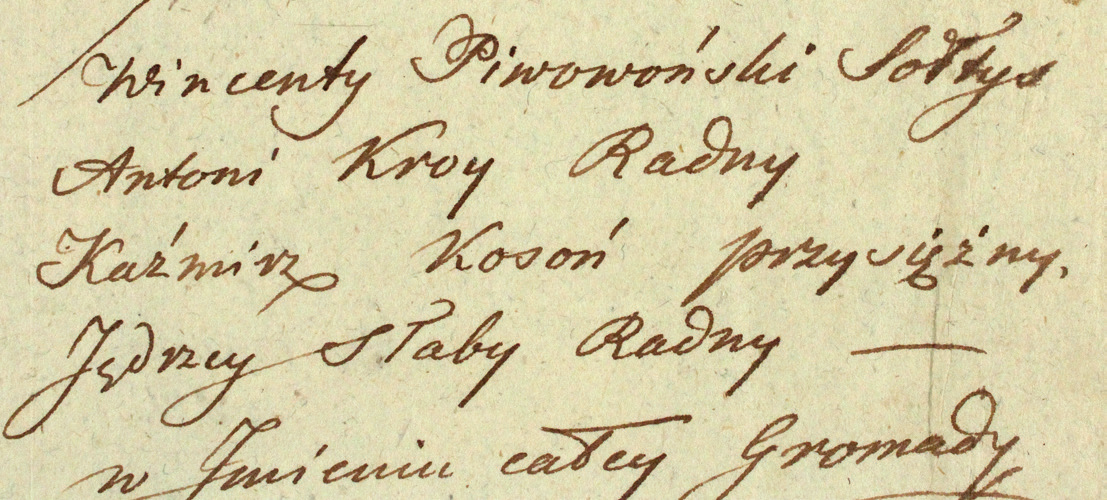 Wincenty Piwowoński Sołtys
Antoni Kroy Radny
Kaźmirz Kosoń przysiężny.
Jędrzey Słaby Radny —
w Imieniu całey Gromady